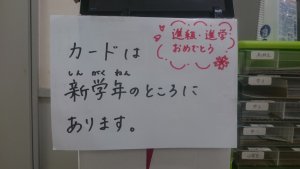 進組・進学
おめでとう
カードは
しん がく ねん
新学年のところに
あります。